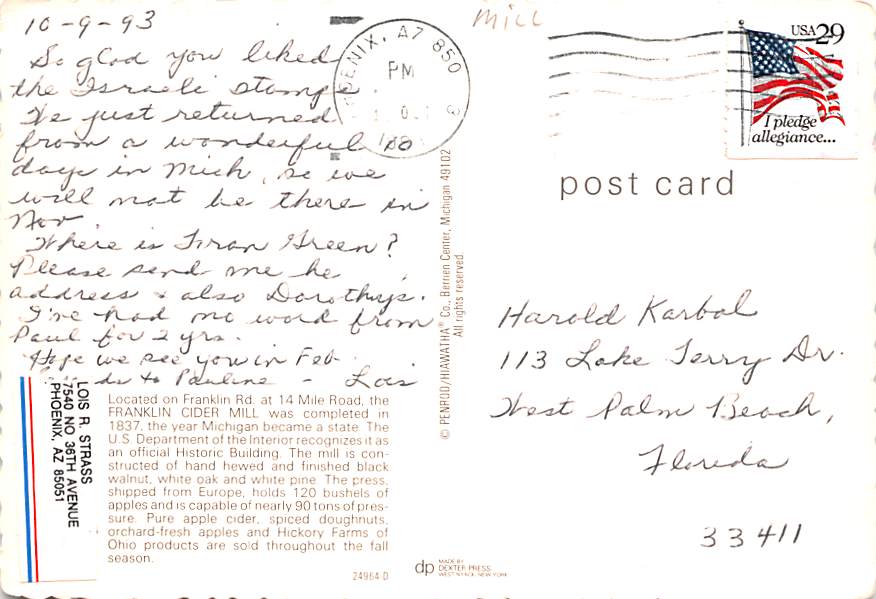 10-9-93
So glad you liked
the Israeli stamps.
We just returned
from a wonderful 10
days in Mich, so we
will not be there in
Nov
Where is Fran Green?
Please send me he
address & also Dorothys.
I've had no word from
Paul for 2 yrs.
Hope we see you in Feb.
to Pauline - Lois
LOIS R. STRASS
7540 NO. 36TH AVENUE
PHOENIX, AZ 85051
Located on Franklin Rd. at 14 Mile Road, the
FRANKLIN CIDER MILL was completed in
1837, the year Michigan became a state. The
U.S. Department of the Interior recognizes it as
an official Historic Building. The mill is con-
structed of hand hewed and finished black
walnut, white oak and white pine. The press,
shipped from Europe, holds 120 bushels of
apples and is capable of nearly 90 tons of pres-
sure. Pure apple cider, spiced doughnuts,
orchard-fresh apples and Hickory Farms of
Ohio products are sold throughout the fall
season.
24964-D
© PENROD/HIAWATHA® Co., Berrien Center, Michigan 49102
All rights reserved.
PHOENIX, AZ 850
PM
Mill
USA 29
I pledge
allegiance...
post card
Harold Karbal
113 Lake Terry Dr.
West Palm Beach,
Florida
33411
dp
MADE BY
DEXTER PRESS
WEST NYACK, NEW YORK